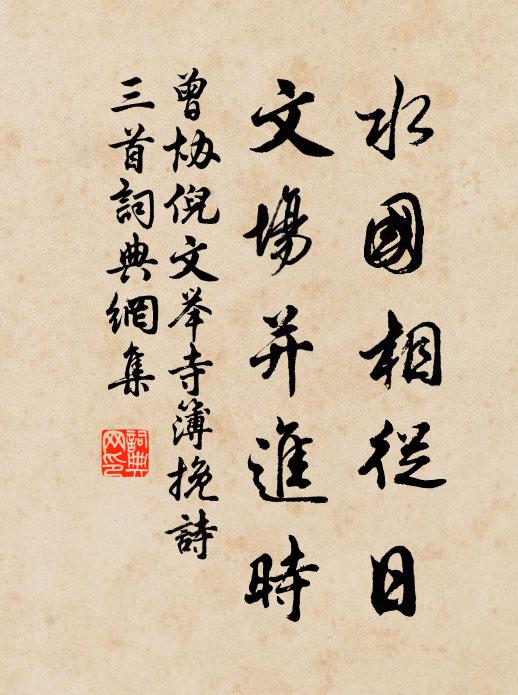 水國相從日
文場并進時
曾协倪文举寺簿挽詩
三首詞典網集
詞典
网印